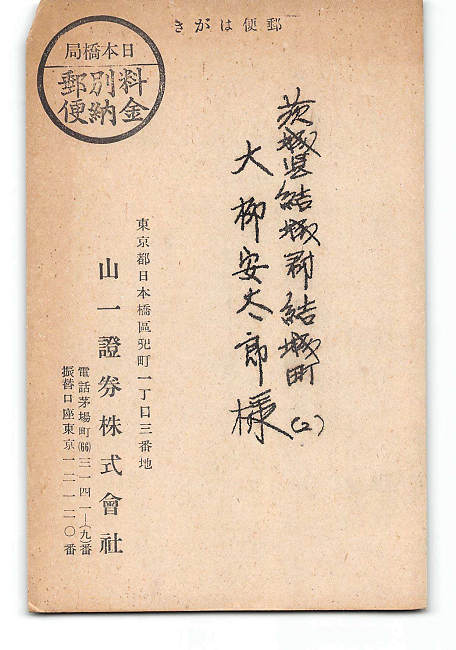 郵便はがき
日本橋局
料金
別納
郵便
茨城県結城郡結城町(2)
大柳安太郎様
東京都日本橋區兜町一丁目三番地
山一證券株式會社
電話茅場町(66)三一四一—(九)番
振替口座東京一二一二〇番